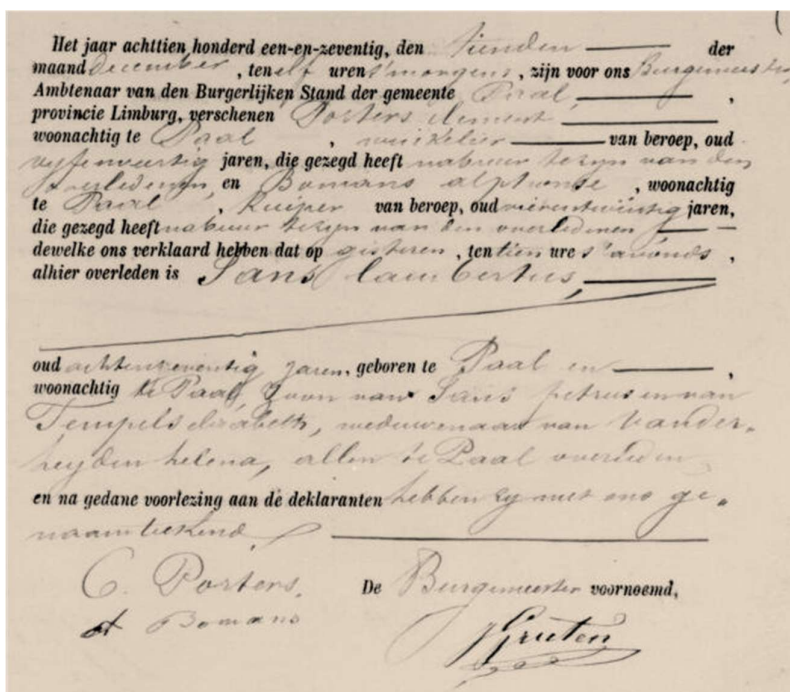 Het jaar achttien honderd een-en-zeventig, den tienden der
maand december, ten elf uren s'morgens, zijn voor ons Burgemeester,
Ambtenaar van den Burgerlijken Stand der gemeente Paal,
provincie Limburg, verschenen Porters clement
woonachtig te Paal, winkelier van beroep, oud
vyfenveertig jaren, die gezegd heeft nabuur te zyn van den
overledenen, en Bomans alphonse, woonachtig
te Paal, kuiper van beroep, oud vierentwintig jaren,
die gezegd heeft nabuur te zyn van den overledenen
dewelke ons verklaard hebben dat op gisteren, ten tien ure s'avonds,
alhier overleden is Sans lambertus,
oud achtenzeventig jaren, geboren te Paal en,
woonachtig te Paal, zoon van Sans petrus en van
Tempels elisabeth, weduwenaar van Vander-
heyden helena, allen te Paal overleden
en na gedane voorlezing aan de deklaranten hebben zy met ons ge-
naamteekend.
C. Porters. De Burgemeester voornoemd,
A Bomans
Gruten